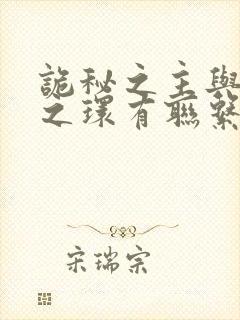 詭秘之主與
之環有聯繫
宋瑞宗